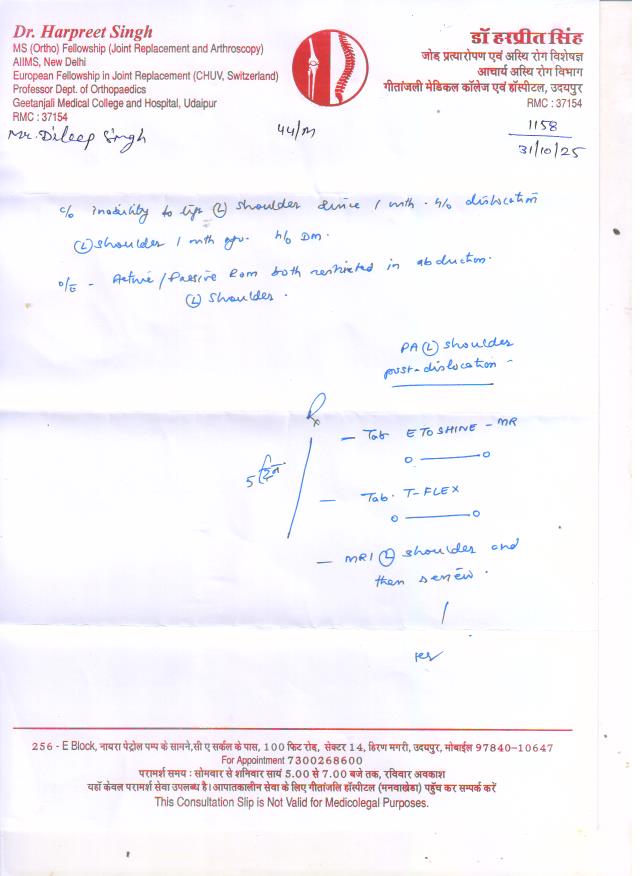 Dr. Harpreet Singh
MS (Ortho) Fellowship (Joint Replacement and Arthroscopy)
AIIMS, New Delhi
European Fellowship in Joint Replacement (CHUV, Switzerland)
Professor Dept. of Orthopaedics
Geetanjali Medical College and Hospital, Udaipur
RMC : 37154
डॉ हरप्रीत सिंह
जोड़ प्रत्यारोपण एवं अस्थि रोग विशेषज्ञ
आचार्य अस्थि रोग विभाग
गीतांजली मेडिकल कॉलेज एवं हॉस्पीटल, उदयपुर
RMC : 37154
Mr. Dileep Singh 44/M 1158
31/10/25
c/o inability to (L) shoulder since 1 mth . h/o dislocation
(L) shoulder 1 mth ago . h/o DM .
o/E - Active / Passive Rom both restricted in abduction .
(L) shoulder .
PA (L) shoulder
post-dislocation -
Rx
— Tab ETOSHINE - MR
o — o
5 दिन
— Tab. T-FLEX
o — o
— MRI (L) shoulder and
then review .
256 - E Block, नायरा पेट्रोल पम्प के सामने,सी ए सर्कल के पास, 100 फिट रोड, सेक्टर 14, हिरण मगरी, उदयपुर, मोबाईल 97840-10647
For Appointment 7300268600
परामर्श समय : सोमवार से शनिवार सायं 5.00 से 7.00 बजे तक, रविवार अवकाश
यहाँ केवल परामर्श सेवा उपलब्ध है। आपातकालीन सेवा के लिए गीतांजलि हॉस्पिटल (मनवाखेडा) पहुँच कर सम्पर्क करें
This Consultation Slip is Not Valid for Medicolegal Purposes.